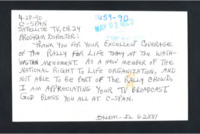 4-28-90
C-SPAN
SATELLITE TV, CH. 24
PROGRAM DIRECTOR:
THANK YOU FOR YOUR EXCELLENT COVERAGE
OF THE RALLY FOR LIFE TODAY AT THE WASH-
INGTON MONUMENT. AS A NEW MEMBER OF THE
NATIONAL RIGHT TO LIFE ORGANIZATION, AND
NOT ABLE TO BE PART OF THE RALLY CROWD,
I AM APPRECIATING YOUR TV BROADCAST.
GOD BLESS YOU ALL AT C-SPAN.
IL 62881